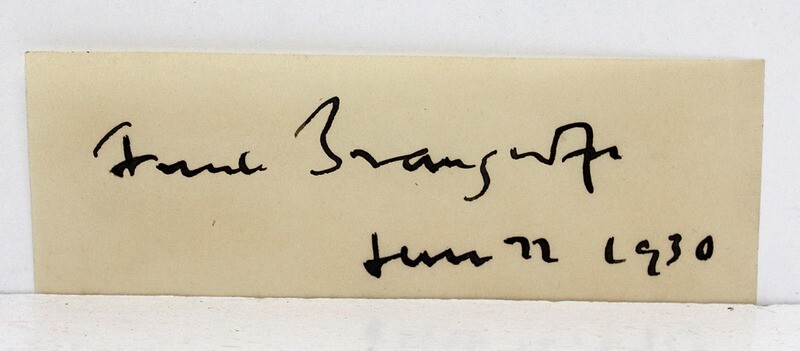 Frank Brangwyn
June 22 1930